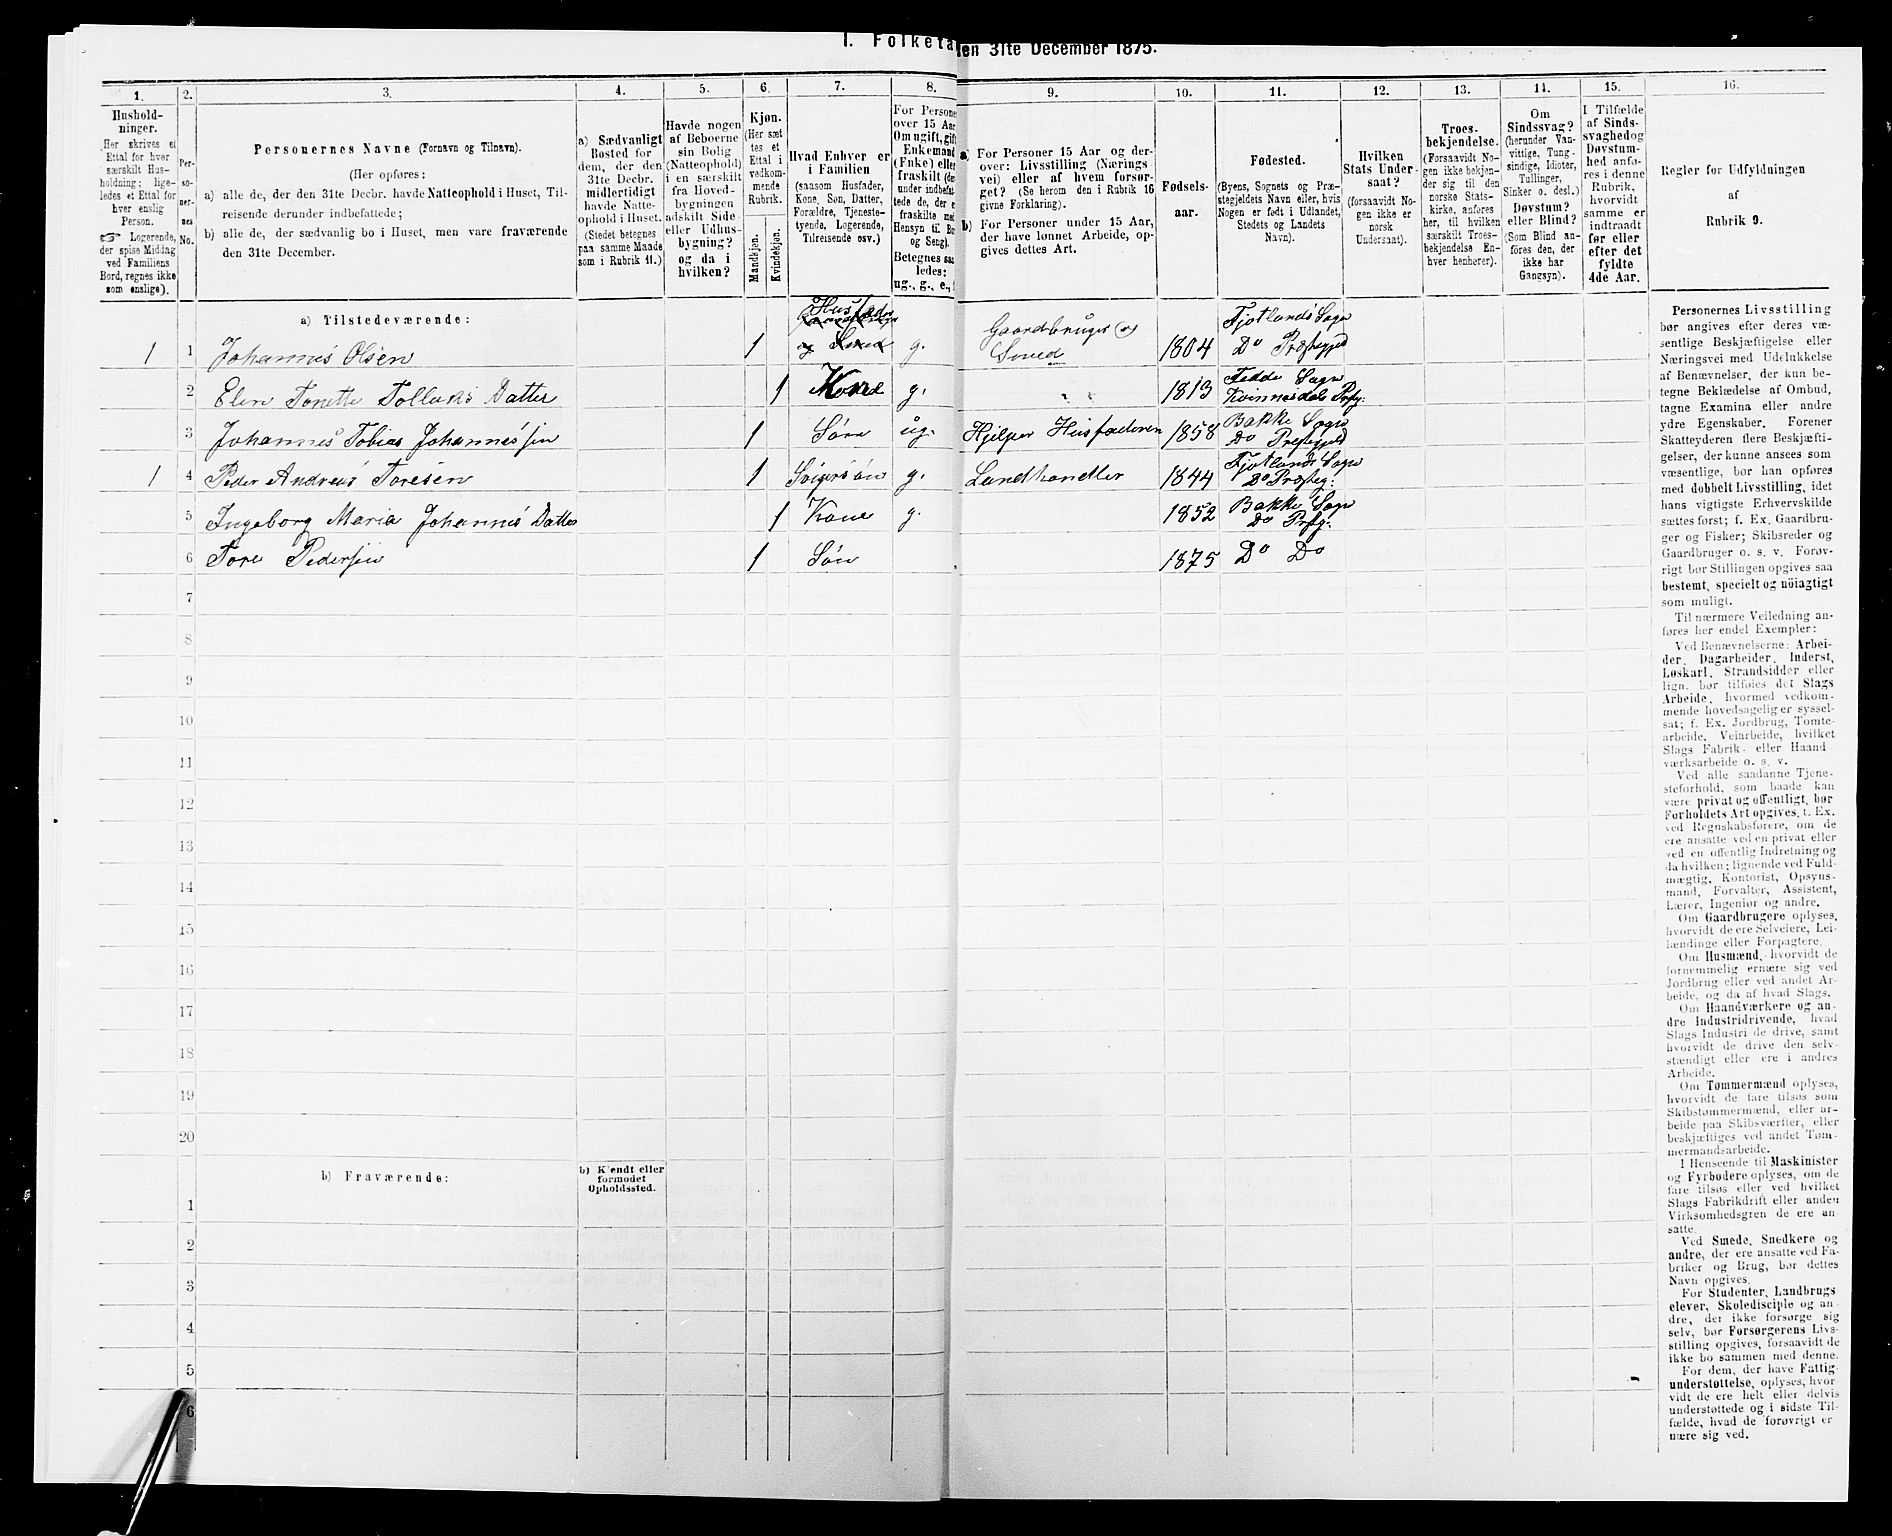 I. Folketæ
en 31te December 1875.
1.
2.
3.
4.
5.
6.
7.
8.
9.
10.
11.
12.
13.
14.
15.
16.
Hushold-
ninger.
(Her skrives et
Ettal for hver
særskilt Hus-
holdning; lige-
ledes et Ettal for
hver enslig
Person.
☞ Logerende,
der spise Middag
ved Familiens
Bord, regnes ikke
som enslige).
Per-
so-
ner-
nes
No.
Personernes Navne (Fornavn og Tilnavn).
(Her opføres:
a) alle de, der den 31te Decbr. havde Natteophold i Huset, Til-
reisende derunder indbefattede;
b) alle de, der sædvanlig bo i Huset, men vare fraværende
den 31te December.
a) Sædvanligt
Bosted for
dem, der den
31te Decbr.
midlertidigt
havde Natte-
ophold i Huset.
(Stedet betegnes
paa samme Maade
som i Rubrik 11.)
Havde nogen
af Beboerne
sin Bolig
(Natteophold)
i en særskilt
fra Hoved-
bygningen
adskilt Side-
eller Udhus-
bygning?
og da i
hvilken?
Kjøn.
(Her sæt
tes et
Ettal i
vedkom-
mende
Rubrik.
Mandkjøn.
Kvindekjøn.
Hvad Enhver er
i Familien
(saasom Husfader,
Kone, Søn, Datter,
Forældre, Tjeneste-
tyende, Logerende,
Tilreisende osv.)
For Persone
over 15 Aar
Om ugift, gift
Enkemand
(Enke) eller
fraskilt (de
under indbefat
tede de, der e
fraskilte me
Hensyn til Bo
og Seng).
Betegnes saa
ledes:
ug., g., e.,
a) For Personer 15 Aar og der-
over: Livsstilling (Nærings-
vei) eller af hvem forsør-
get? (Se herom den i Rubrik 16
givne Forklaring).
b) For Personer under 15 Aar,
der have lønnet Arbeide, op-
gives dettes Art.
Fødsels-
aar.
Fødested.
(Byens, Sognets og Præ-
stegjeldets Navn eller, hvis
Nogen er født i Udlandet,
Stedets og Landets
Navn).
Hvilken
Stats Under-
saat?
(forsaavidt No-
gen ikke er
norsk
Undersaat).
Troes-
bekjendelse.
(Forsaavidt No-
gen ikke bekjen-
der sig til den
norske Stats-
kirke, anføres
her, til hvilken
særskilt Troes-
bekjendelse En-
hver henhører).
Om
Sindssvag?
(herunder Van-
vittige, Tung-
sindige, Idioter,
Tullinger,
Sinker o. desl.)
Døvstum?
eller Blind?
(Som Blind an-
føres den, der
ikke har
Gangsyn).
I Tilfælde
af Sinds-
svaghed og
Døvstum-
hed anfø-
res i denne
Rubrik,
hvorvidt
samme er
indtraadt
før eller
efter det
fyldte
4de Aar.
Regler for Udfyldningen
af
Rubrik 9.
a) Tilstedeværende:
1 1 Johannes Olsen 1 Husfader og Smed g. Gaardbruger og Smed 1804 Fjotlands Sogn Do Præstegjeld
2 Elen Tonette Tollaks Datter 1 Kone g. " " 1813 Fedde Sogn Kvinnesdals Prstg:
3 Johannes Tobias Johannessen 1 Søn ug. Hjelper Husfaderen 1858 Bakke Sogn Do Prestegjeld
1 4 Peder Andreas Toresen 1 Svigersøn g. Landhandler 1844 Fjotlands Sogn Do Præsteg:
5 Ingeborg Maria Johannes Datter 1 Kone g. 1852 Bakke Sogn Do Prstg:
6 Tore Pedersen 1 Søn 1875 Do Do
7
8
9
10
11
12
13
14
15
16
17
18
19
20
b) Fraværende:
b) Kjendt eller
formodet
Opholdssted.
1
2
3
4
5
6
Personernes Livsstilling
bør angives efter deres væ-
sentlige Beskjæftigelse eller
Næringsvei med Udelukkelse
af Benævnelser, der kun be-
tegne Beklædelse af Ombud,
tagne Examina eller andre
ydre Egenskaber. Forener
Skatteyderen flere Beskjæfti-
gelser, der kunne ansees som
væsentlige, bør han opføres
med dobbelt Livsstilling, idet
hans vigtigste Erhvervskilde
sættes først; f. Ex. Gaardbru-
ger og Fisker; Skibsreder og
Gaardbruger o. s. v. Forøv-
rigt bør Stillingen opgives saa
bestemt, specielt og nöiagtigt
som muligt.
Til nærmere Veiledning an-
føres her endel Exempler:
Ved Benævnelserne: Arbei-
der, Dagarbeider, Inderst,
Løskarl, Strandsidder eller
lign. bør tilføies det Slags
Arbeide, hvormed vedkom-
mende hovedsagelig er syssel-
sat; f. Ex. Jordbrug, Tomte-
arbeide, Veiarbeide, hvilket
Slags Fabrik- eller Haand
værksarbeide o. s. v.
Ved alle saadanne Tjene-
steforhold, som baade kan
være privat og offentligt, bør
Forholdets Art opgives, t. Ex.
ved Regnskabsførere, om de
ere ansatte ved en privat eller
ved en offentlig Indretning og
da hvilken; lignende ved Fuld-
mægtig, Kontorist, Opsyns-
mand, Forvalter, Assistent,
Lærer, Ingeniør og andre.
Om Gaardbrugere oplyses,
hvorvidt de ere Selveiere, Lei-
lændinge eller Forpagtere.
Om Husmænd, hvorvidt de
fornemmelig ernære sig ved
Jordbrug eller ved andet Ar-
beide, og da af hvad Slags.
Om Haandværkere og an-
dre Industridrivende, hvad
Slags Industri de drive, samt
hvorvidt de drive den selv-
stændigt eller ere i andres
Arbeide.
Om Tømmermænd oplyses,
hvorvidt de fare tilsøs som
Skibstømmermænd, eller ar-
beide paa Skibsværfter, eller
beskjæftiges ved andet Tøm-
mermandsarbeide.
I Henseende til Maskinister
og Fyrbødere oplyses, om de
fare tilsøs eller ved hvilket
Slags Fabrikdrift eller anden
Virksomhedsgren de ere an-
satte.
Ved Smede, Snedkere og
andre, der ere ansatte ved Fa-
briker og Brug, bør dettes
Navn opgives.
For Studenter, Landbrugs
elever, Skoledisciple og an-
dre, der ikke forsørge sig
selv, bør Forsørgerens Livs-
stilling opgives, forsaavidt de
ikke bo sammen med denne.
For dem, der have Fattig-
understøttelse, oplyses, hvor-
vidt de ere helt eller delvis
understøttede og i sidste Til-
fælde, hvad de forøvrigt er
nære sig ved.